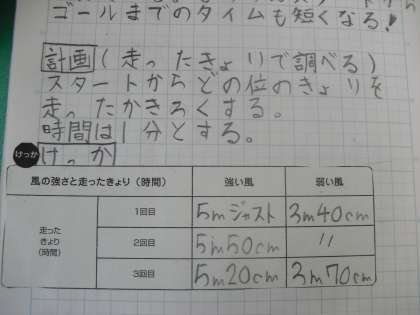 ゴールまでのタイムも短くなる!
計画(走ったきょりで調べる)
スタートからどの位のきょりを
走ったかきろくする。
時間は1分とする。
けっか けっか
風の強さと走ったきょり(時間) 強い風 弱い風
走った
きょり
(時間)
1回目 5mジャスト 3m40cm
2回目 5m50cm 〃
3回目 5m20cm 3m70cm